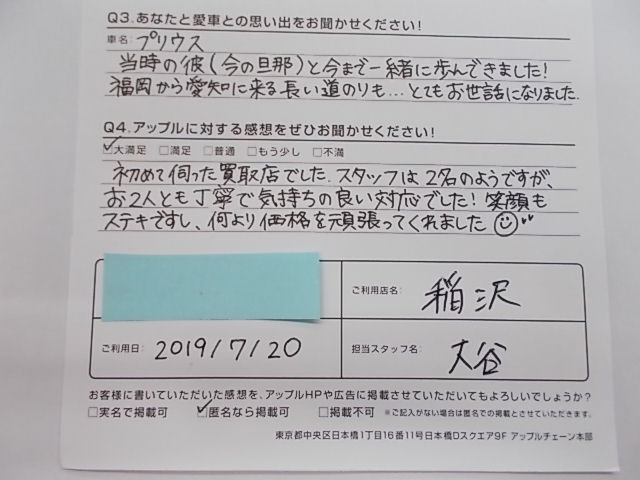 Q3.あなたと愛車との思い出をお聞かせください!
車名: プリウス
当時の彼(今の旦那)と今まで一緒に歩んできました!
福岡から愛知に来る長い道のりも…とてもお世話になりました.
Q4.アップルに対する感想をぜひお聞かせください!
☑大満足 □満足 □普通 □もう少し □不満
初めて伺った買取店でした.スタッフは2名のようですが、
お2人とも丁寧で気持ちの良い対応でした!笑顔も
ステキですし、何より価格を頑張ってくれました
ご利用店名: 稲沢
ご利用日: 2019/7/20
担当スタッフ名: 大谷
お客様に書いていただいた感想を、アップルHPや広告に掲載させていただいてもよろしいでしょうか?
□実名で掲載可 ☑匿名なら掲載可 □掲載不可 ※ご記入がない場合は匿名での掲載とさせていただきます。
東京都中央区日本橋1丁目16番11号日本橋Dスクエア9F アップルチェーン本部